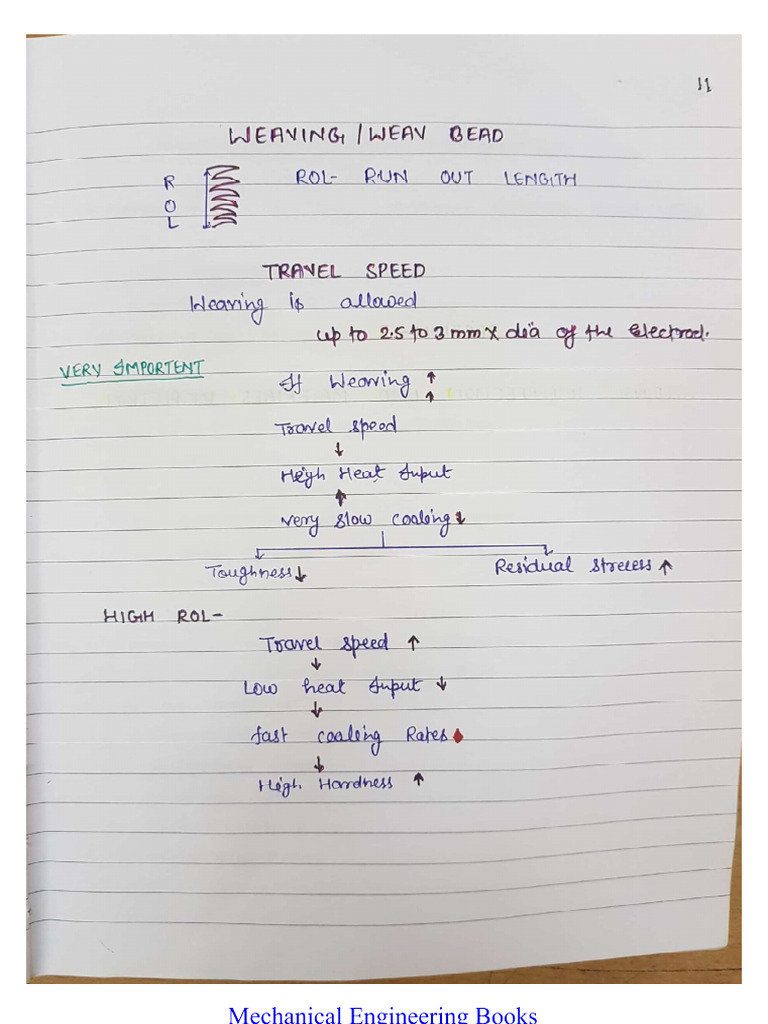 11
WEAVING / WEAV BEAD
ROL ROL- RUN OUT LENGTH
TRAVEL SPEED
Weaving is allowed
up to 2.5 to 3 mm x dia of the Electrod.
VERY IMPORTENT
If Weaving ↑
↑
Travel speed
↓
High Heat Input
↑
very slow cooling ↓
Toughness ↓ Residual streess ↑
HIGH ROL-
Travel speed ↑
↓
Low heat Input ↓
↓
fast cooling Rates
↓
High Hardness ↑
Mechanical Engineering Books